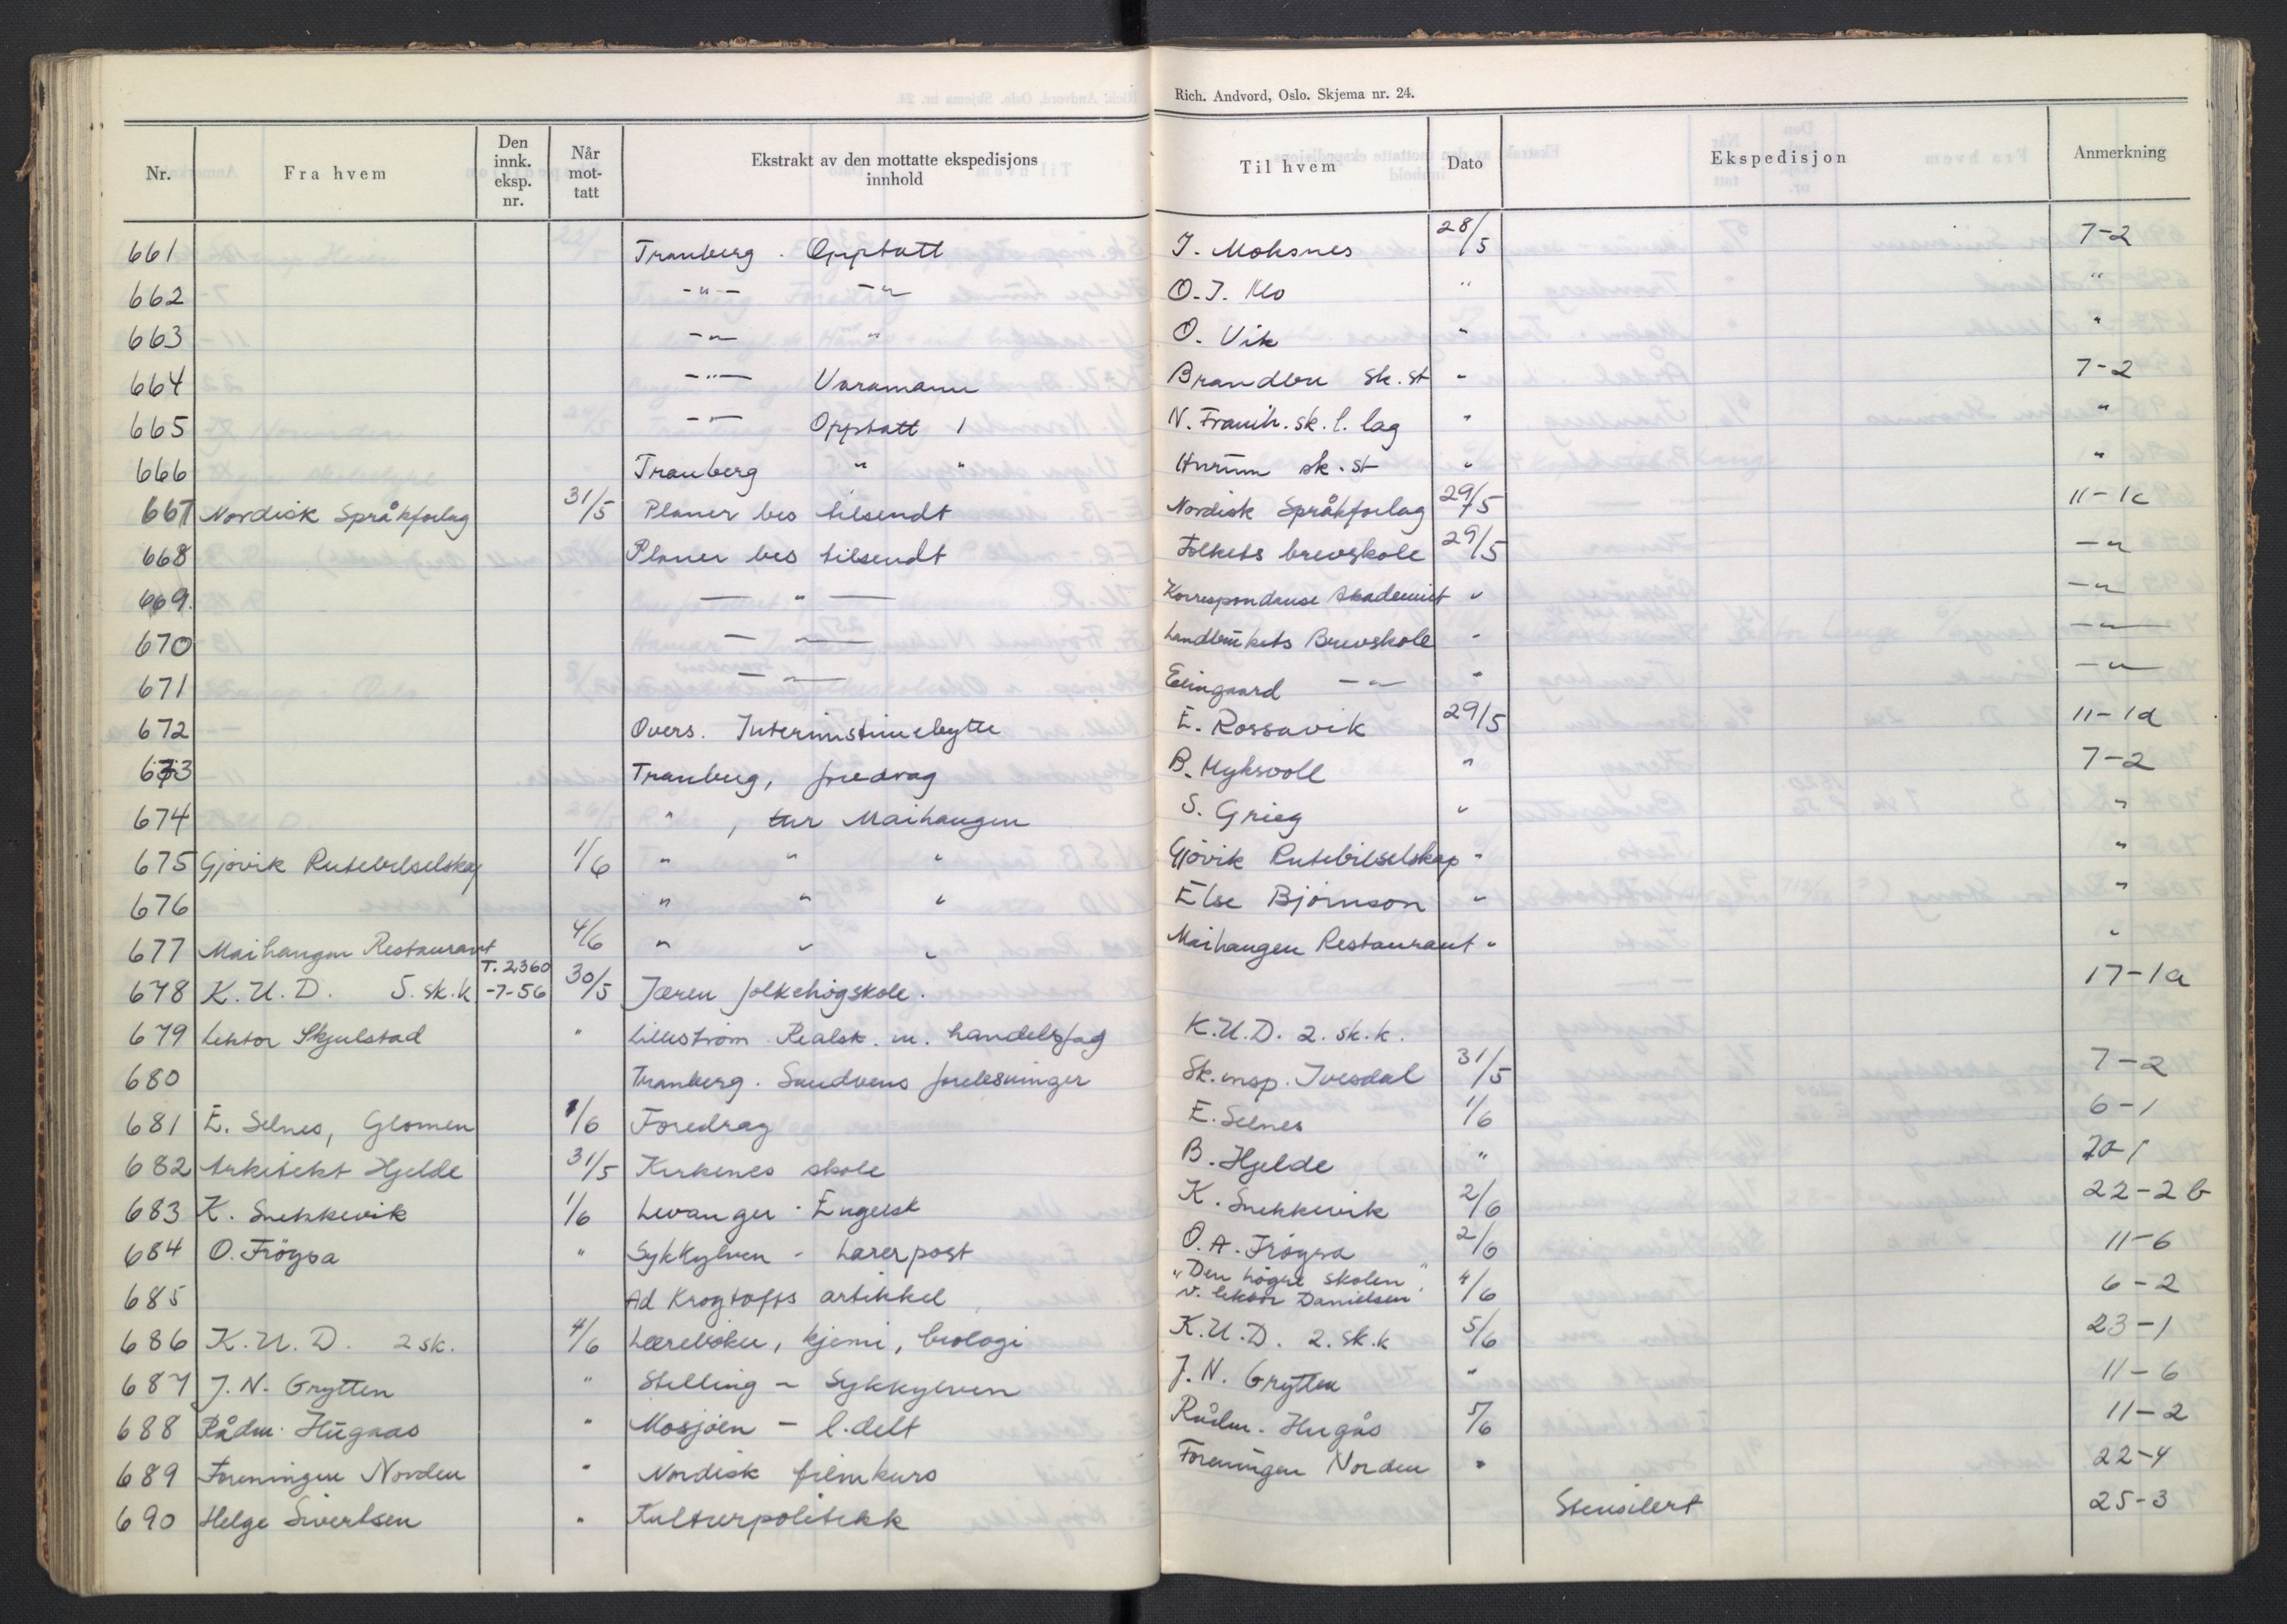 Rich. Andvord, Oslo. Skjema nr. 24.
Nr. Fra hvem Den innk. eksp. nr. Når mot- tatt Ekstrakt av den mottatte ekspedisjons innhold Til hvem Dato Ekspedisjon Anmerkning
661 Tranberg . Opptatt J. Moksnes 28/5 7-2
662 -"- -" O. J. Klo " "
663 -"- " O. Vik " "
664 -"- Varamann Brandbu sk. st " 7-2
665 -"- Opptatt 1 N. Framh. sk. l. lag " "
666 Tranberg " " Hurum sk. st " "
667 Nordisk Språkforlag 31/5 Planer bes tilsendt Nordisk Språkforlag 29/5 11-1c
668 Planer bes tilsendt Folkets brevskole 29/5 -"
669. — " — Korrespondanse Akademiet " -"
670 — " — Landbrukets Brevskole " -"-
671 — " — Elingaard -"- " -"
672 Overs. Interimstimebytte E. Rossavik 29/5 11-1d
673 Tranberg, foredrag B. Myksvoll " 7-2
674 " , tur Maihaugen S. Grieg " "
675 Gjøvik Rutebilselskap 1/6 " " " Gjøvik Rutebilselskap " "
676 " " " Else Bjørnson " "
677 Maihaugen Restaurant 4/6 " " " Maihaugen Restaurant " "
678 K.U.D. 5. sk.k T. 2360 -7-56 30/5 Jæren folkehøgskole. 17-1a
679 Lektor Skjulstad " Lillestrøm Realsk. m. handelsfag K.U.D. 2. sk.k.
680 Tranberg. Sandvens forelesninger Sk.insp. Ivesdal 31/5 7-2
681 E. Selnes, Glomen 1/6 Foredrag E. Selnes 1/6 6-1
682 Arkitekt Hjelde 31/5 Kirkenes skole B. Hjelde " 20-1
683 K. Snekkevik 1/6 Levanger - Engelsk K. Snekkevik 2/6 22-2b
684 O. Frøysa " Sykkylven - Lærerpost O.A. Frøysa 2/6 11-6
685 Ad Krogtofts artikkel "Den høgre skolen" v. lektor Danielsen 4/6 6-2
686 K.U.D. 2 sk. 4/6 Lærebøker, kjemi, biologi K.U.D. 2. sk.k 5/6 23-1
687 J.N. Grytten " Stilling - Sykkylven J.N. Grytten " 11-6
688 Rådm. Hugaas " Mosjøen - l.delt Rådm. Hugås 5/6 11-2
689 Foreningen Norden " Nordisk filmkurs Foreningen Norden " 22-4
690 Helge Sivertsen " Kulturpolitikk Stensilert 25-3